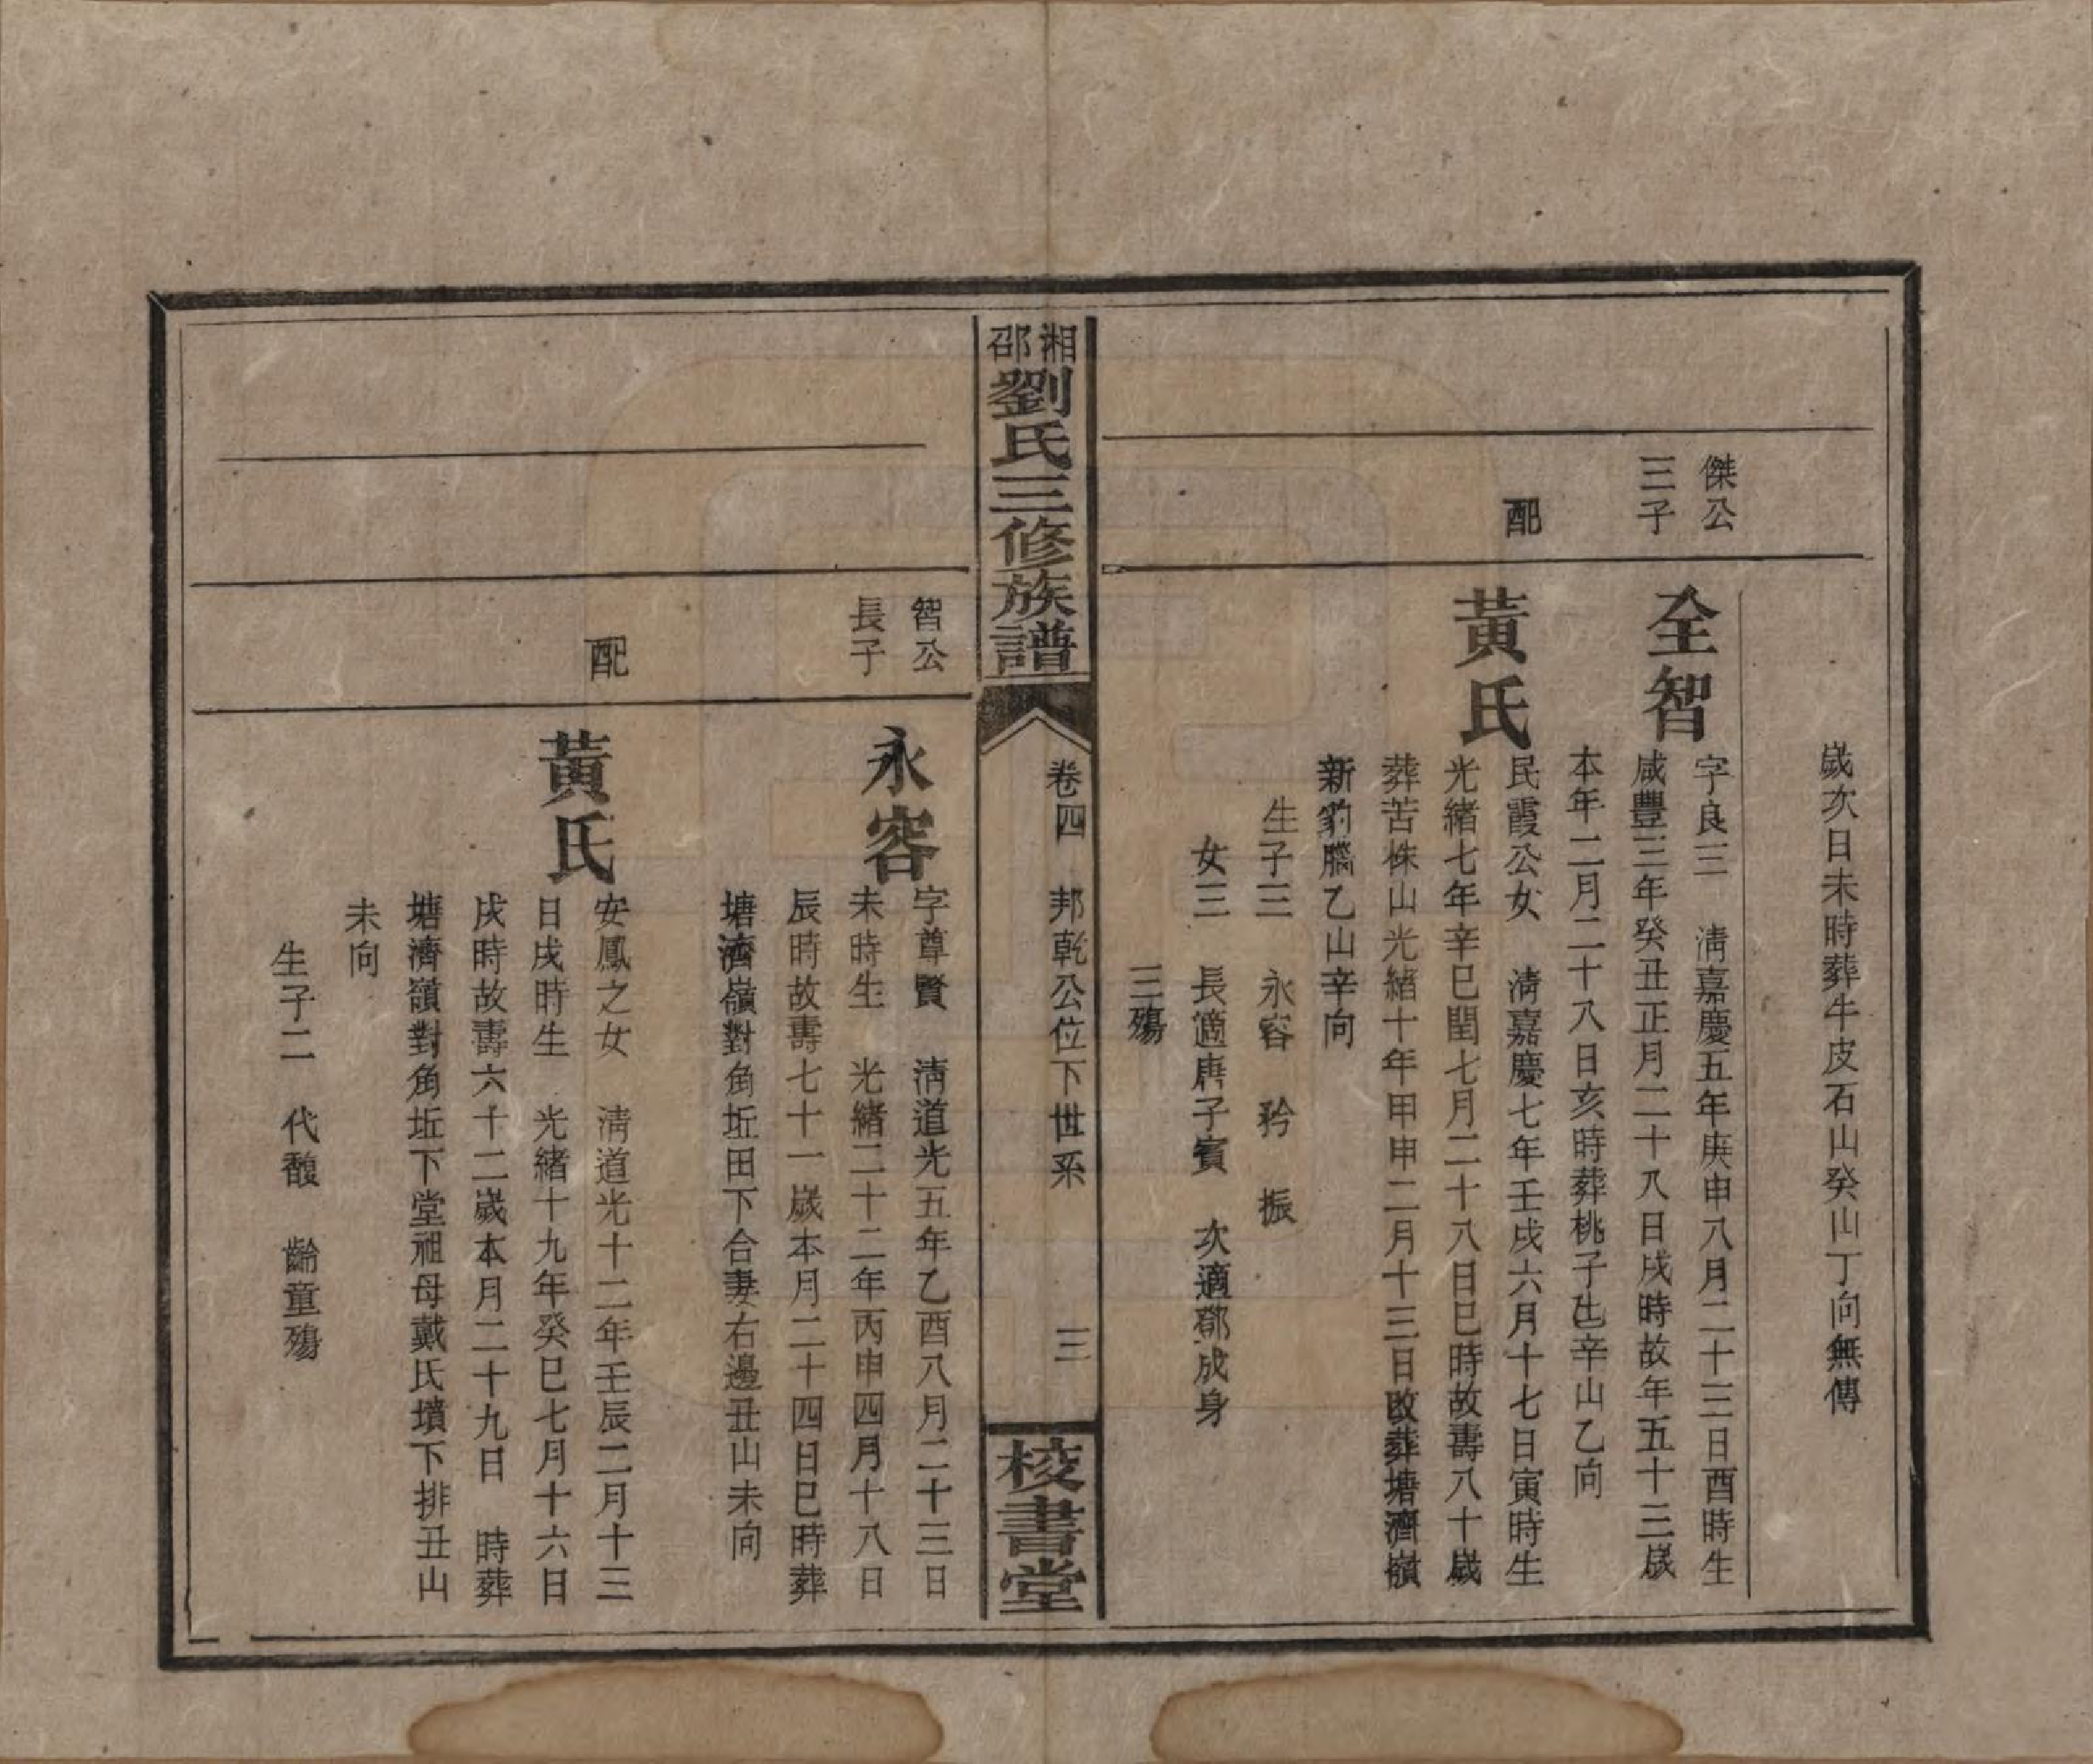 歲次日未時葬牛皮石山癸山丁向無傳
傑公
三子
全智
字良三　清嘉慶五年庚申八月二十三日酉時生
咸豐三年癸丑正月二十八日戌時故年五十三歲
本年二月二十八日亥時葬桃子辛山乙向
配
黃氏
民霞公女　清嘉慶七年壬戌六月十七日寅時生
光緒七年辛巳閏七月二十八日巳時故壽八十歲
葬苦株山光緒十年甲申二月十三日改葬塘濟嶺
新豹乙山辛向
生子三　永容　矜　振
女三　長適唐子賓　次適鄧成身
三殤
湘邵劉氏三修族譜
卷四　邦乾公位下世系　三
校書堂
智公
長子
永容
字尊賢　清道光五年乙酉八月二十三日
未時生　光緒二十二年丙申四月十八日
辰時故壽七十一歲本月二十四日巳時葬
塘濟嶺對角坵田下合妻右邊丑山未向
配
黃氏
安鳳之女　清道光十二年壬辰二月十三
日戌時生　光緒十九年癸巳七月十六日
戌時故壽六十二歲本月二十九日　時葬
塘濟嶺對角坵下堂祖母戴氏墳下排丑山
未向
生子二　代馥　齡童殤